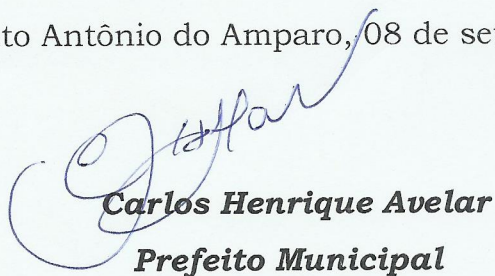 to Antônio do Amparo, 08 de se
Carlos Henrique Avelar
Prefeito Municipal